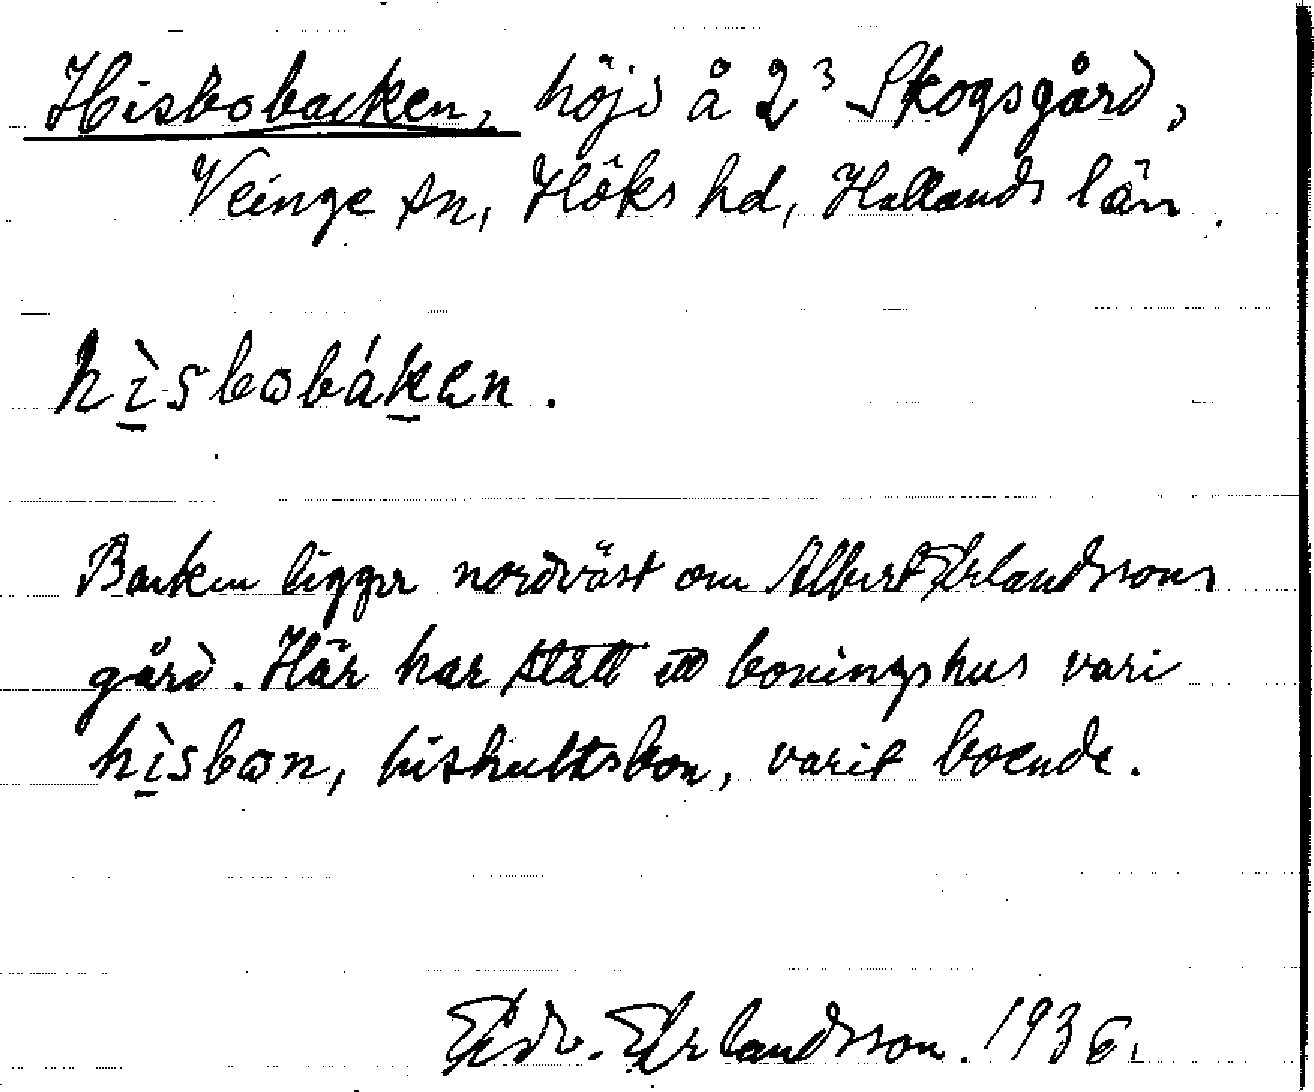 Hisbobacken, höjd å 2³ Skogsgård,
Veinge sn, Höks hd, Hallands län.
hìsbobáken.
Backen ligger nordväst om Albert Erlandssons
gård. Här har stått ett boningshus vari
hìsbon, hishultsbon, varit boende.
Edv. Erlandsson. 1936.